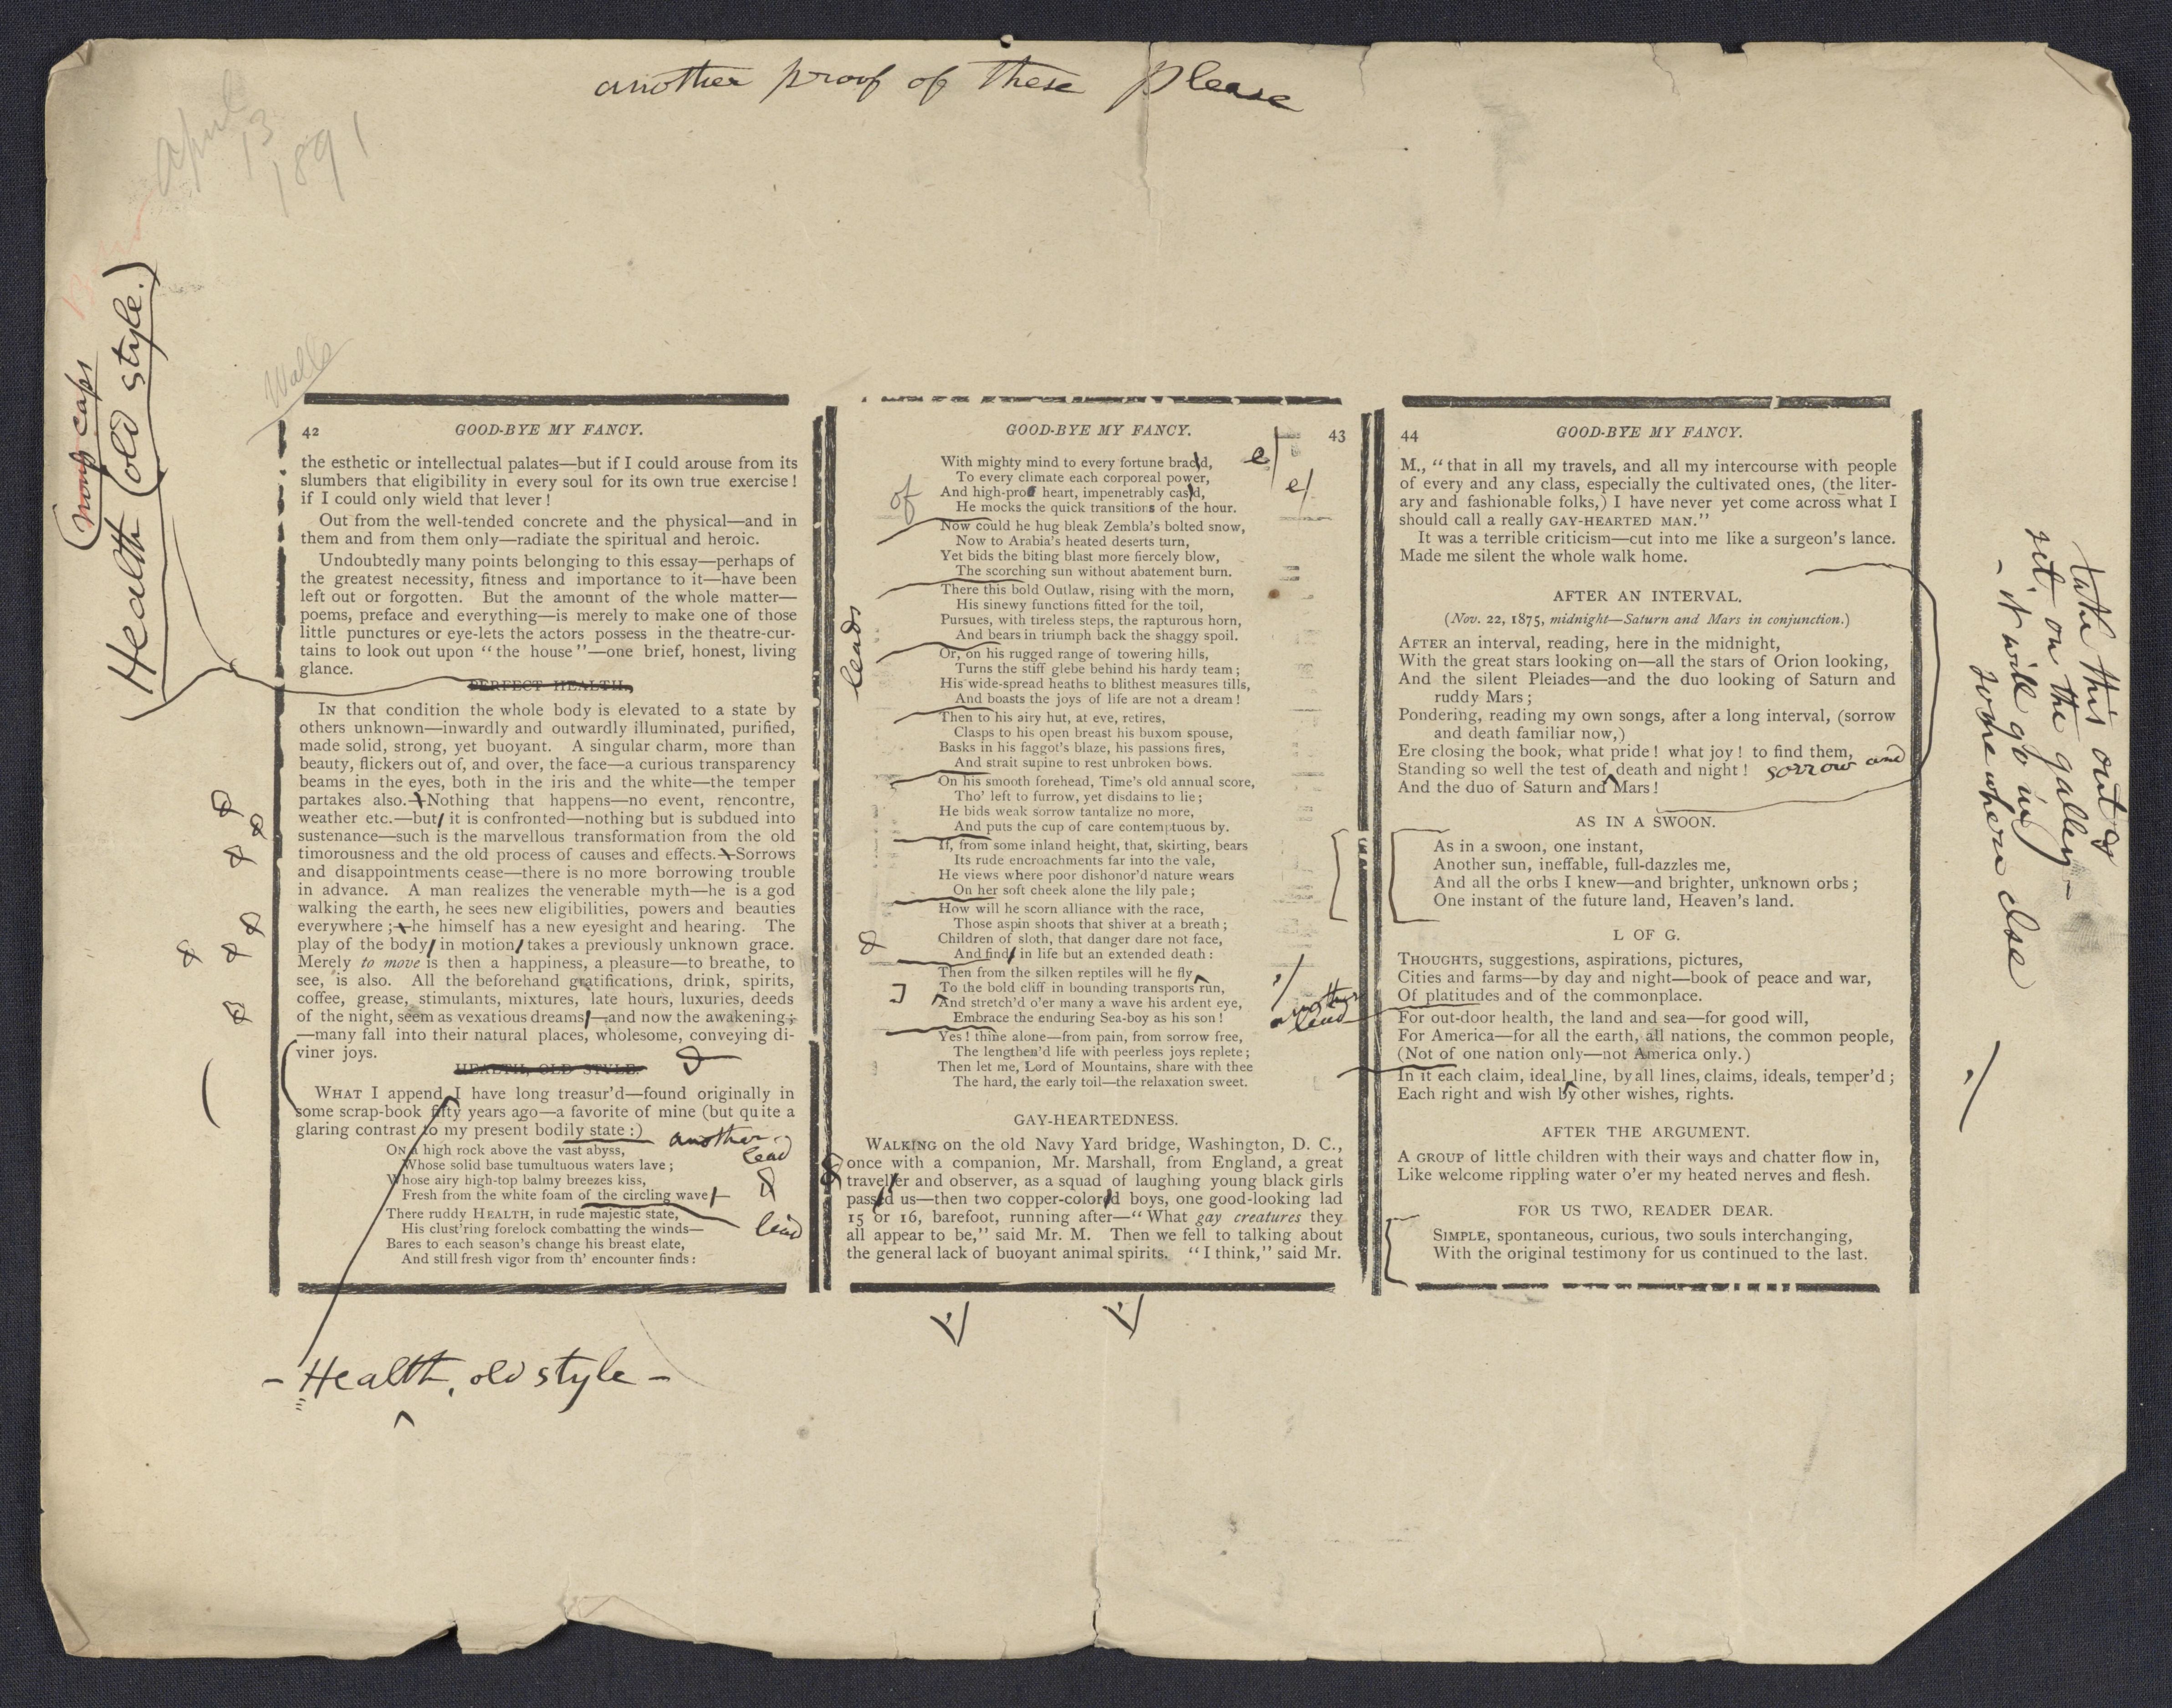 another proof of these please
April
13
1891
Walls
caps
Health (old style.)
42 GOOD-BYE MY FANCY.
the esthetic or intellectual palates—but if I could arouse from its
slumbers that eligibility in every soul for its own true exercise!
if I could only wield that lever!
Out from the well-tended concrete and the physical—and in
them and from them only—radiate the spiritual and heroic.
Undoubtedly many points belonging to this essay—perhaps of
the greatest necessity, fitness and importance to it—have been
left out or forgotten. But the amount of the whole matter—
poems, preface and everything—is merely to make one of those
little punctures or eye-lets the actors possess in the theatre-cur-
tains to look out upon "the house"—one brief, honest, living
glance.
PERFECT HEALTH.
IN that condition the whole body is elevated to a state by
others unknown—inwardly and outwardly illuminated, purified,
made solid, strong, yet buoyant. A singular charm, more than
beauty, flickers out of, and over, the face—a curious transparency
beams in the eyes, both in the iris and the white—the temper
partakes also.—Nothing that happens—no event, rencontre,
weather etc.—but, it is confronted—nothing but is subdued into
sustenance—such is the marvellous transformation from the old
timorousness and the old process of causes and effects.—Sorrows
and disappointments cease—there is no more borrowing trouble
in advance. A man realizes the venerable myth—he is a god
walking the earth, he sees new eligibilities, powers and beauties
everywhere;—he himself has a new eyesight and hearing. The
play of the body, in motion, takes a previously unknown grace.
Merely to move is then a happiness, a pleasure—to breathe, to
see, is also. All the beforehand gratifications, drink, spirits,
coffee, grease, stimulants, mixtures, late hours, luxuries, deeds
of the night, seem as vexatious dreams,—and now the awakening;
—many fall into their natural places, wholesome, conveying di-
viner joys.
HEALTH, OLD STYLE.
WHAT I append I have long treasur'd—found originally in
some scrap-book fifty years ago—a favorite of mine (but quite a
glaring contrast to my present bodily state:)
another
lead
On a high rock above the vast abyss,
Whose solid base tumultuous waters lave;
Whose airy high-top balmy breezes kiss,
Fresh from the white foam of the circling wave,—
There ruddy HEALTH, in rude majestic state,
lead
His clust'ring forelock combatting the winds—
Bares to each season's change his breast elate,
And still fresh vigor from th' encounter finds:
- Health, old style -
GOOD-BYE MY FANCY. 43
With mighty mind to every fortune brac'd,
e/
To every climate each corporeal power,
And high-proo heart, impenetrably cas'd,
of
e/
He mocks the quick transitions of the hour.
Now could he hug bleak Zembla's bolted snow,
Now to Arabia's heated deserts turn,
Yet bids the biting blast more fiercely blow,
The scorching sun without abatement burn.
There this bold Outlaw, rising with the morn,
His sinewy functions fitted for the toil,
Pursues, with tireless steps, the rapturous horn,
And bears in triumph back the shaggy spoil.
leads
Or, on his rugged range of towering hills,
Turns the stiff glebe behind his hardy team;
His wide-spread heaths to blithest measures tills,
And boasts the joys of life are not a dream!
Then to his airy hut, at eve, retires,
Clasps to his open breast his buxom spouse,
Basks in his faggot's blaze, his passions fires,
And strait supine to rest unbroken bows.
On his smooth forehead, Time's old annual score,
Tho' left to furrow, yet disdains to lie;
He bids weak sorrow tantalize no more,
And puts the cup of care contemptuous by.
If, from some inland height, that, skirting, bears
Its rude encroachments far into the vale,
He views where poor dishonor'd nature wears
On her soft cheek alone the lily pale;
How will he scorn alliance with the race,
Those aspin shoots that shiver at a breath;
Children of sloth, that danger dare not face,
And find, in life but an extended death:
Then from the silken reptiles will he fly
To the bold cliff in bounding transports run,
And stretch'd o'er many a wave his ardent eye,
Embrace the enduring Sea-boy as his son!
Yes! thine alone—from pain, from sorrow free,
The lengthen'd life with peerless joys replete;
Then let me, Lord of Mountains, share with thee
The hard, the early toil—the relaxation sweet.
GAY-HEARTEDNESS.
WALKING on the old Navy Yard bridge, Washington, D. C.,
once with a companion, Mr. Marshall, from England, a great
traveller and observer, as a squad of laughing young black girls
passed us—then two copper-color'd boys, one good-looking lad
15 or 16, barefoot, running after—"What gay creatures they
all appear to be," said Mr. M. Then we fell to talking about
the general lack of buoyant animal spirits. "I think," said Mr.
44 GOOD-BYE MY FANCY.
M., "that in all my travels, and all my intercourse with people
of every and any class, especially the cultivated ones, (the liter-
ary and fashionable folks,) I have never yet come across what I
should call a really GAY-HEARTED MAN."
It was a terrible criticism—cut into me like a surgeon's lance.
Made me silent the whole walk home.
AFTER AN INTERVAL.
(Nov. 22, 1875, midnight—Saturn and Mars in conjunction.)
AFTER an interval, reading, here in the midnight,
With the great stars looking on—all the stars of Orion looking,
And the silent Pleiades—and the duo looking of Saturn and
ruddy Mars;
Pondering, reading my own songs, after a long interval, (sorrow
and death familiar now,)
Ere closing the book, what pride! what joy! to find them,
Standing so well the test of death and night!
sorrow and
And the duo of Saturn and Mars!
AS IN A SWOON.
As in a swoon, one instant,
Another sun, ineffable, full-dazzles me,
And all the orbs I knew—and brighter, unknown orbs;
One instant of the future land, Heaven's land.
L OF G.
THOUGHTS, suggestions, aspirations, pictures,
Cities and farms—by day and night—book of peace and war,
Of platitudes and of the commonplace.
another
lead
For out-door health, the land and sea—for good will,
For America—for all the earth, all nations, the common people,
(Not of one nation only—not America only.)
In it each claim, ideal line, by all lines, claims, ideals, temper'd;
Each right and wish by other wishes, rights.
AFTER THE ARGUMENT.
A GROUP of little children with their ways and chatter flow in,
Like welcome rippling water o'er my heated nerves and flesh.
FOR US TWO, READER DEAR.
SIMPLE, spontaneous, curious, two souls interchanging,
With the original testimony for us continued to the last.
take this out &
set on the galley—
- it will go in
some where else